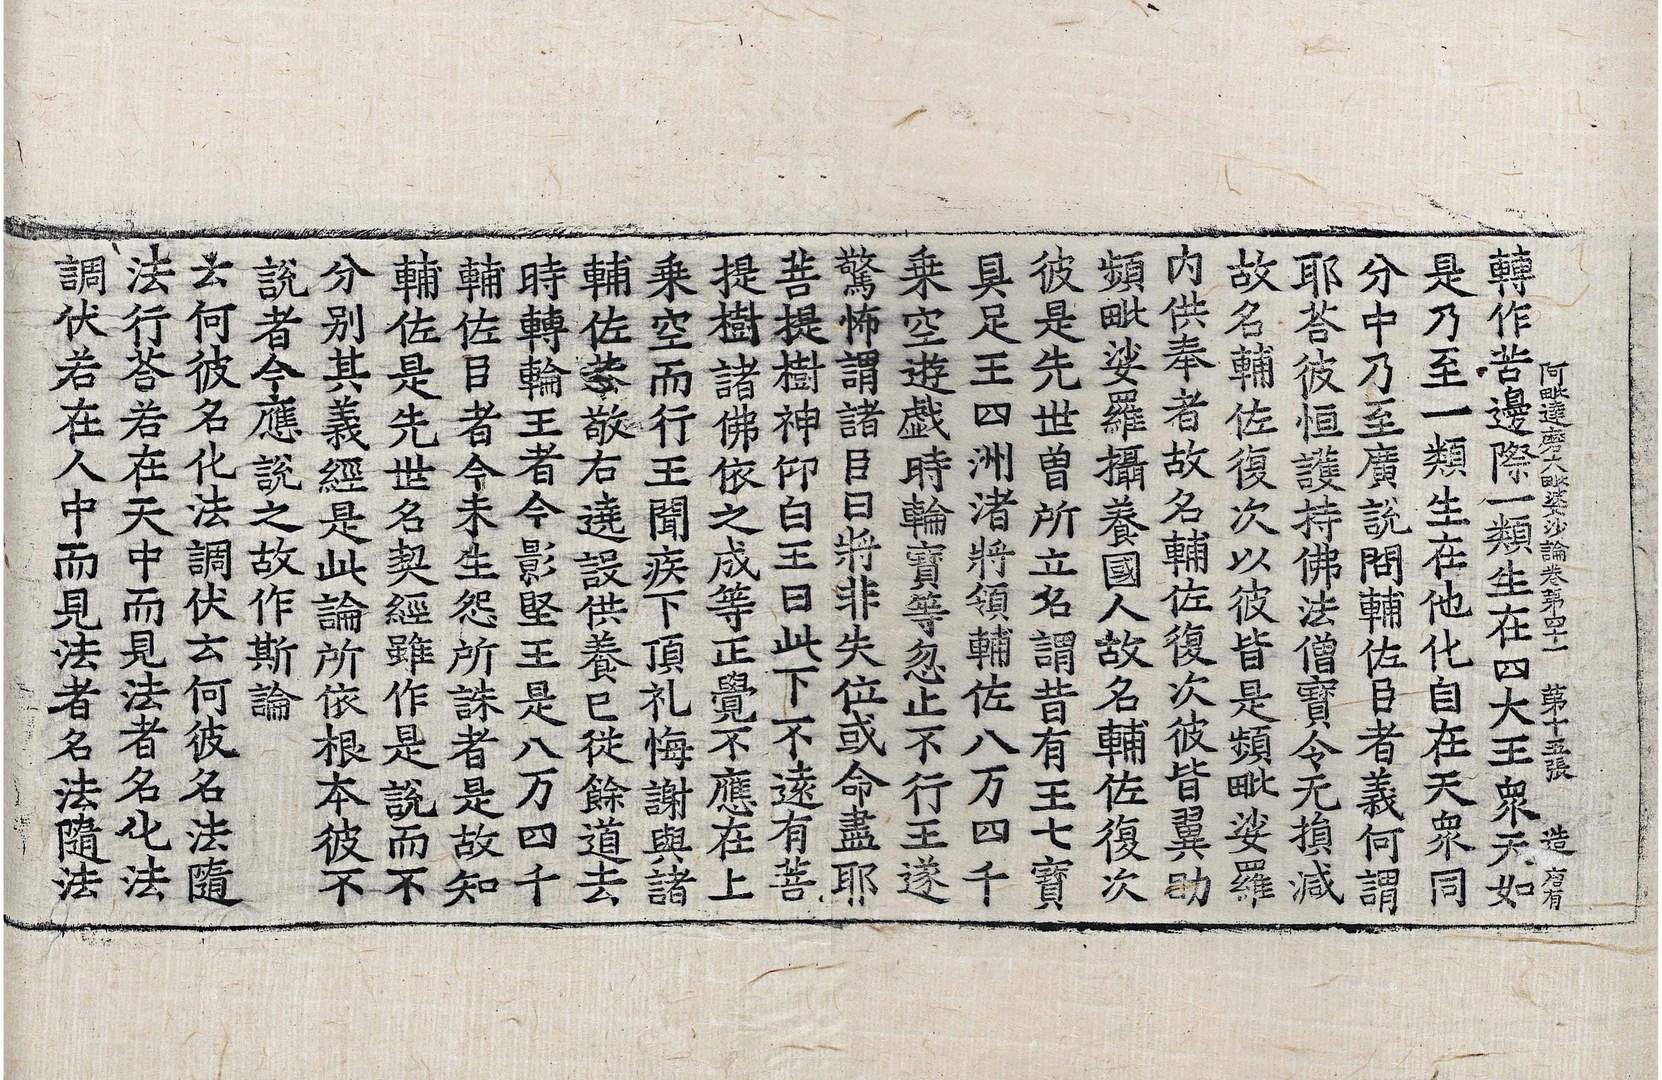 阿毗達磨大毗婆沙論卷第四十一 第十五張 造
轉作苦邊際一類生在四大王衆天如
是乃至一類生在他化自在天衆同
分中乃至廣說問輔佐臣者義何謂
耶荅彼恒護持佛法僧寶令无損减
故名輔佐復次以彼皆是頻毗娑羅
内供奉者故名輔佐復次彼皆翼助
頻毗娑羅攝養國人故名輔佐復次
彼是先世曾所立名謂昔有王七寶
具足王四洲渚將領輔佐八万四千
乗空遊戱時輪寶等忽止不行王遂
驚怖謂諸臣曰將非失位或命盡耶
菩提樹神仰白王曰此下不遠有菩
提樹諸佛依之成等正覺不應在上
乗空而行王聞疾下頂礼悔謝與諸
輔佐恭敬右遶設供養已從餘道去
時轉輪王者今影堅王是八万四千
輔佐臣者今未生怨所誅者是故知
輔佐是先世名契經雖作是說而不
分别其義經是此論所依根本彼不
說者今應說之故作斯論
云何彼名化法調伏云何彼名法隨
法行荅若在天中而見法者名化法
調伏若在人中而見法者名法隨法